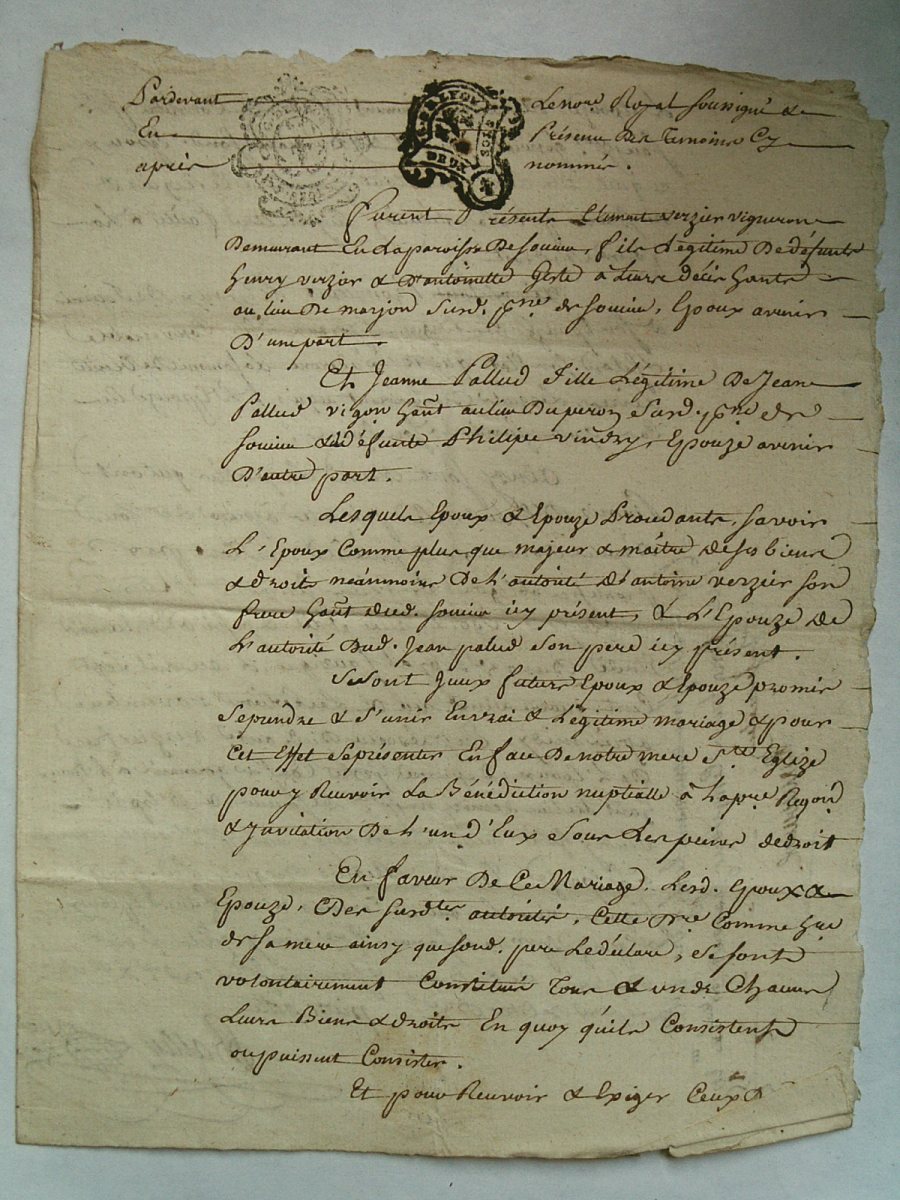 Pardevant Le nore. Royal soussigné &
LYON DEUX SOLS
En Présence des Temoins Cy
après nommés.
furent Présents Clément verzier vigneron
Demeurant En la paroisse De soucieu, fils Légitime De défunts
henry verzier & D'antoinette à Leurs décès habts
au lieu De marjon Susd. psse de soucieu, Epoux avenir
D'une part.
Et Jeanne Pallud fille Légitime De Jean
Pallud vigon habt au lieu Du peron Susd. psse de
soucieu & défunte Philipe vindry, Epouze avenir
D'autre part.
Lesquels Epoux & Epouze Procédants, savoir
L'Epoux Comme plus que majeur & maître de ses biens
& droits néanmoins De L'autorité d'antoine verzier son
frere habt aud. soucieu icy présent, & L'Epouze de
L'autorité Dud. Jean palud son pere icy présent.
Se sont Iceux futurs Epoux & Epouze promis
Se prendre & s'unir En vrai & Légitime mariage & pour
Cet Effet Se présenter En face De notre mere Ste Eglize
pour y Recevoir La Bénédiction nuptialle à La pre Requon
& Invitation De L'un d'Eux Sous Les peines de droit
En faveur De Ce Mariage. Lesd. Epoux &
Epouze, Des susdtes autorités, Cette Dre Comme hre
de sa mere ainsy que sond. pere Le déclare, se sont
volontairement Constitué Tous & uns Chacuns
Leurs Biens & droits En quoy qu'ils Consistent
ou puissent Consister.
Et pour Recevoir & Exiger Ceux D